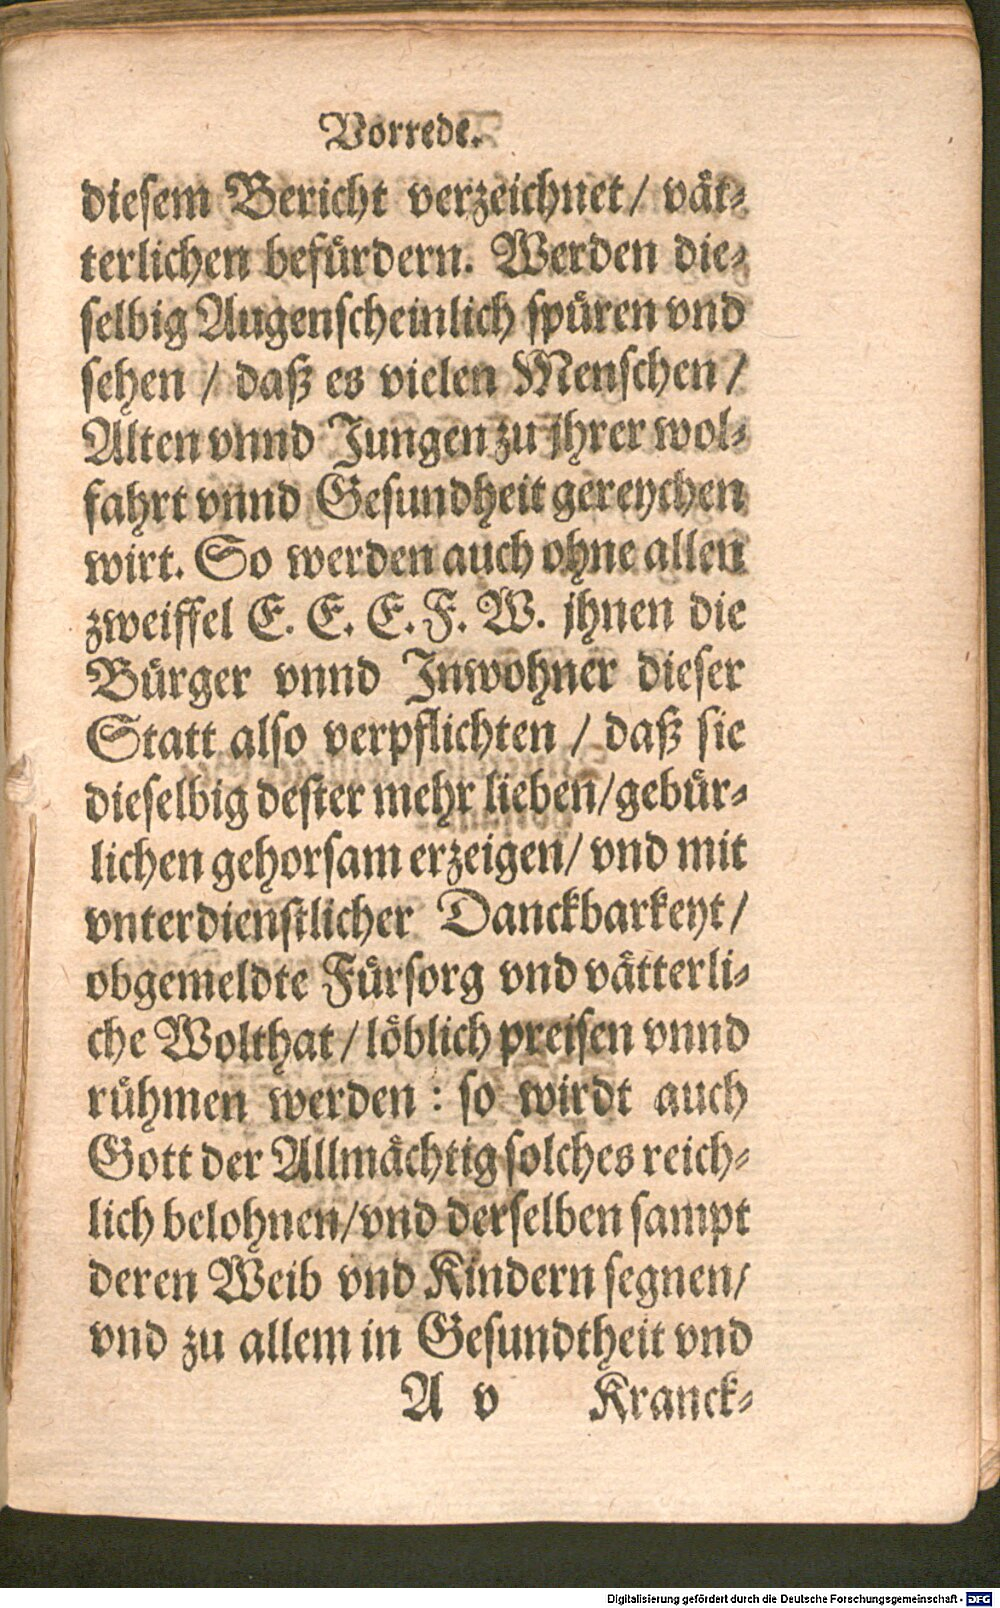 Vorrede.
diesem Bericht verzeichnet / våt-
terlichen befürdern. Werden die-
selbig Augenscheinlich spüren vnd
sehen / daß es vielen Menschen /
Alten vnnd Jungen zu jhrer wol-
fahrt vnnd Gesundheit gereychen
wirt. So werden auch ohne allen
zweiffel E. E. E. F. W. jhnen die
Bürger vnnd Inwohner dieser
Statt also verpflichten / daß sie
dieselbig dester mehr lieben / gebür-
lichen gehorsam erzeigen / vnd mit
vnterdienstlicher Danckbarkeyt /
obgemeldte Fürsorg vnd våtterli-
che Wolthat / löblich preisen vnnd
rühmen werden : so wirdt auch
Gott der Allmåchtig solches reich-
lich belohnen / vnd derselben sampt
deren Weib vnd Kindern segnen /
vnd zu allem in Gesundtheit vnd
A v Kranck-
Digitalisierung gefördert durch die Deutsche Forschungsgemeinschaft - DFG